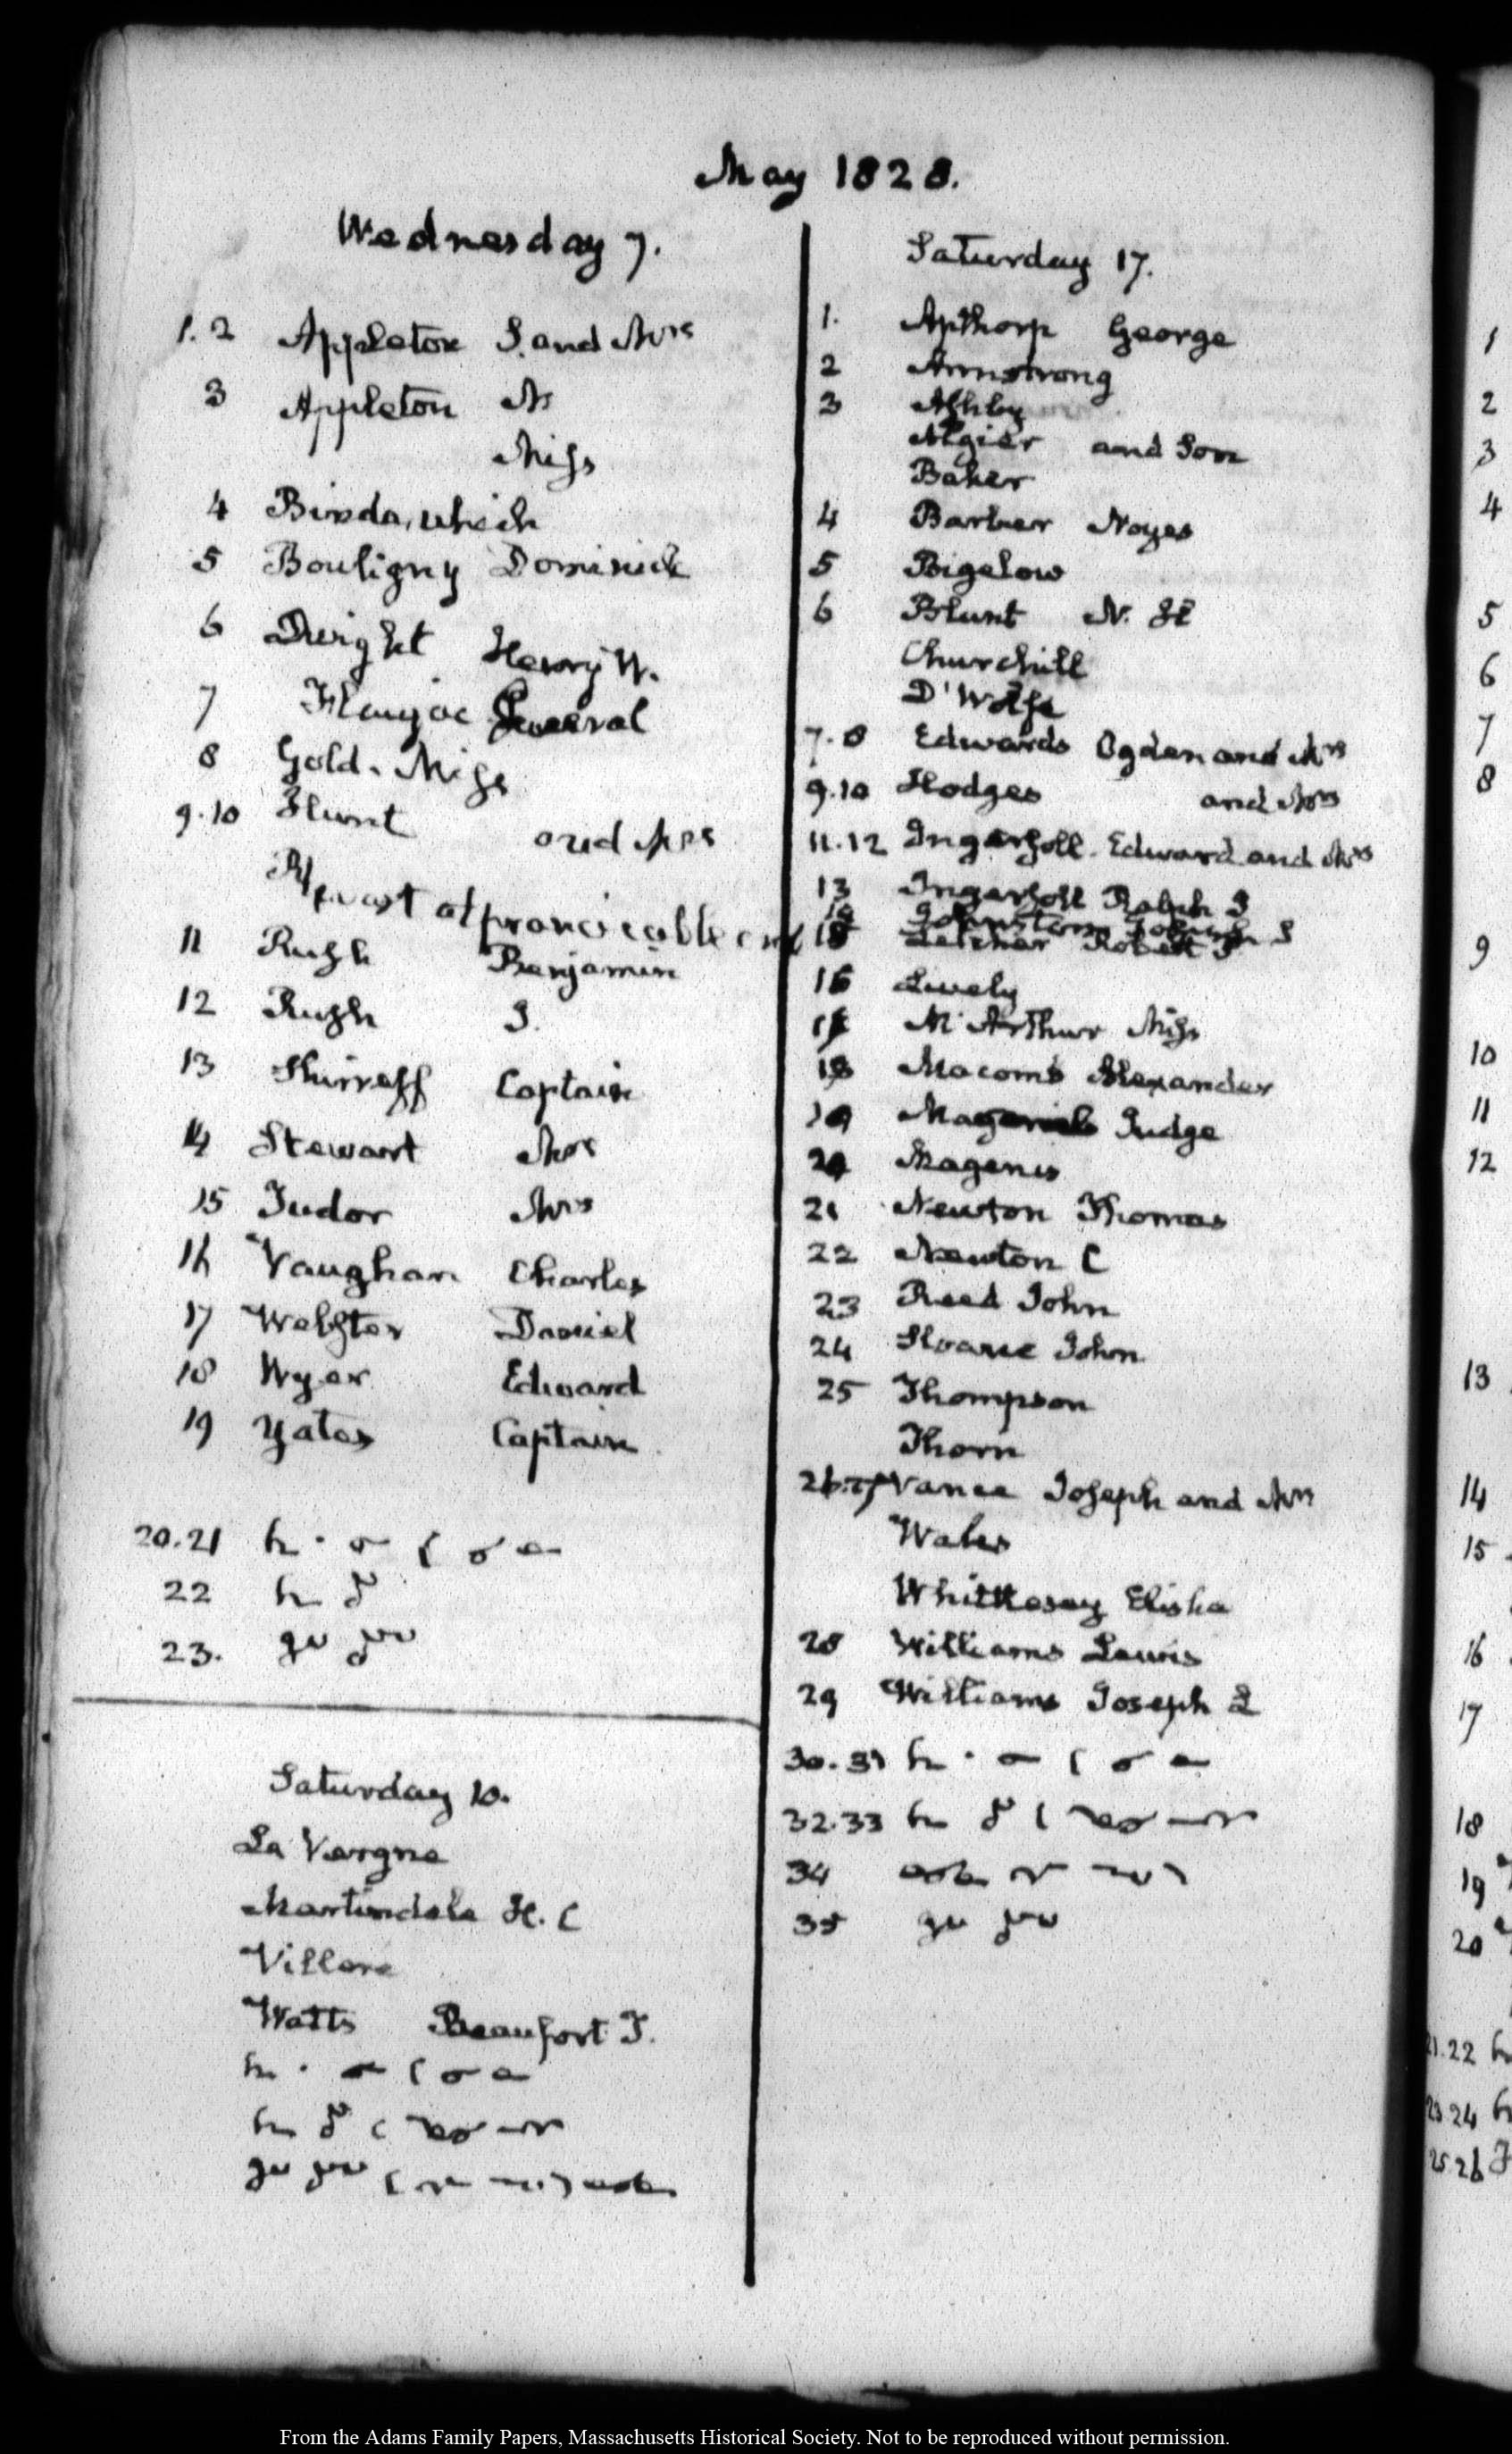 May 1828.
Wednesday 7.
1.2 Appleton S. and Mrs
3 Appleton N
Miss
4
5 Bouligny Dominick
6 Dwight Henry W.
7 General
8 Gold. Miss
9.10 Hunt and Mrs
at
11 Rush Benjamin
12 Rush J.
13 Shirreff Captain
14 Stewart Mrs
15 Tudor Mrs
16 Vaughan Charles
17 Webster Daniel
18 Wyer Edward
19 Yates Captain
20.21
22
23.
Saturday 10.
La Vergne
Martindale H. C
Villere
Watts Beaufort T.
Saturday 17.
1. Apthorp George
2 Armstrong
3 Ashby
Algier and Son
Baker
4 Barber Noyes
5 Bigelow
6 Blunt N. H
Churchill
D'Wolfe
7.8 Edwards Ogden and Mrs
9.10 Hodges and Mrs
11.12 Ingersoll. Edward and Mrs
13 Ingersoll Ralph I
14 Johnston Joseph S
15 Letcher Robert P
16 Lively
17 McArthur Miss
18 Macomb Alexander
19 Judge
20 Magenis
21 Newton Thomas
22 Newton C
23 Reed John
24 Sloane John
25 Thompson
Thorn
26.27 Vance Joseph and Mrs
Wales
Whittlesey Elisha
28 Williams Lewis
29 Williams Joseph L
30.31
32.33
34
35
1
2
3
4
5
6
7
8
9
10
11
12
13
14
15
16
17
18
19
20
21.22
23.24
25.26
From the Adams Family Papers, Massachusetts Historical Society. Not to be reproduced without permission.